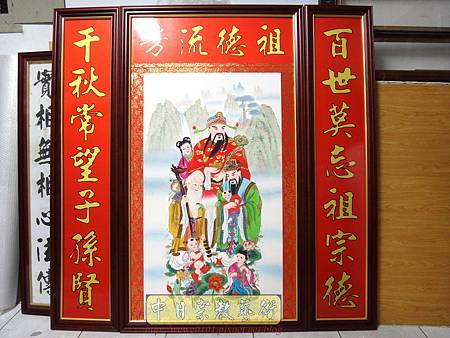 祖德流芳
百世莫忘祖宗德
千秋常望子孫賢
實相無相心法傳
中日宗教藝術